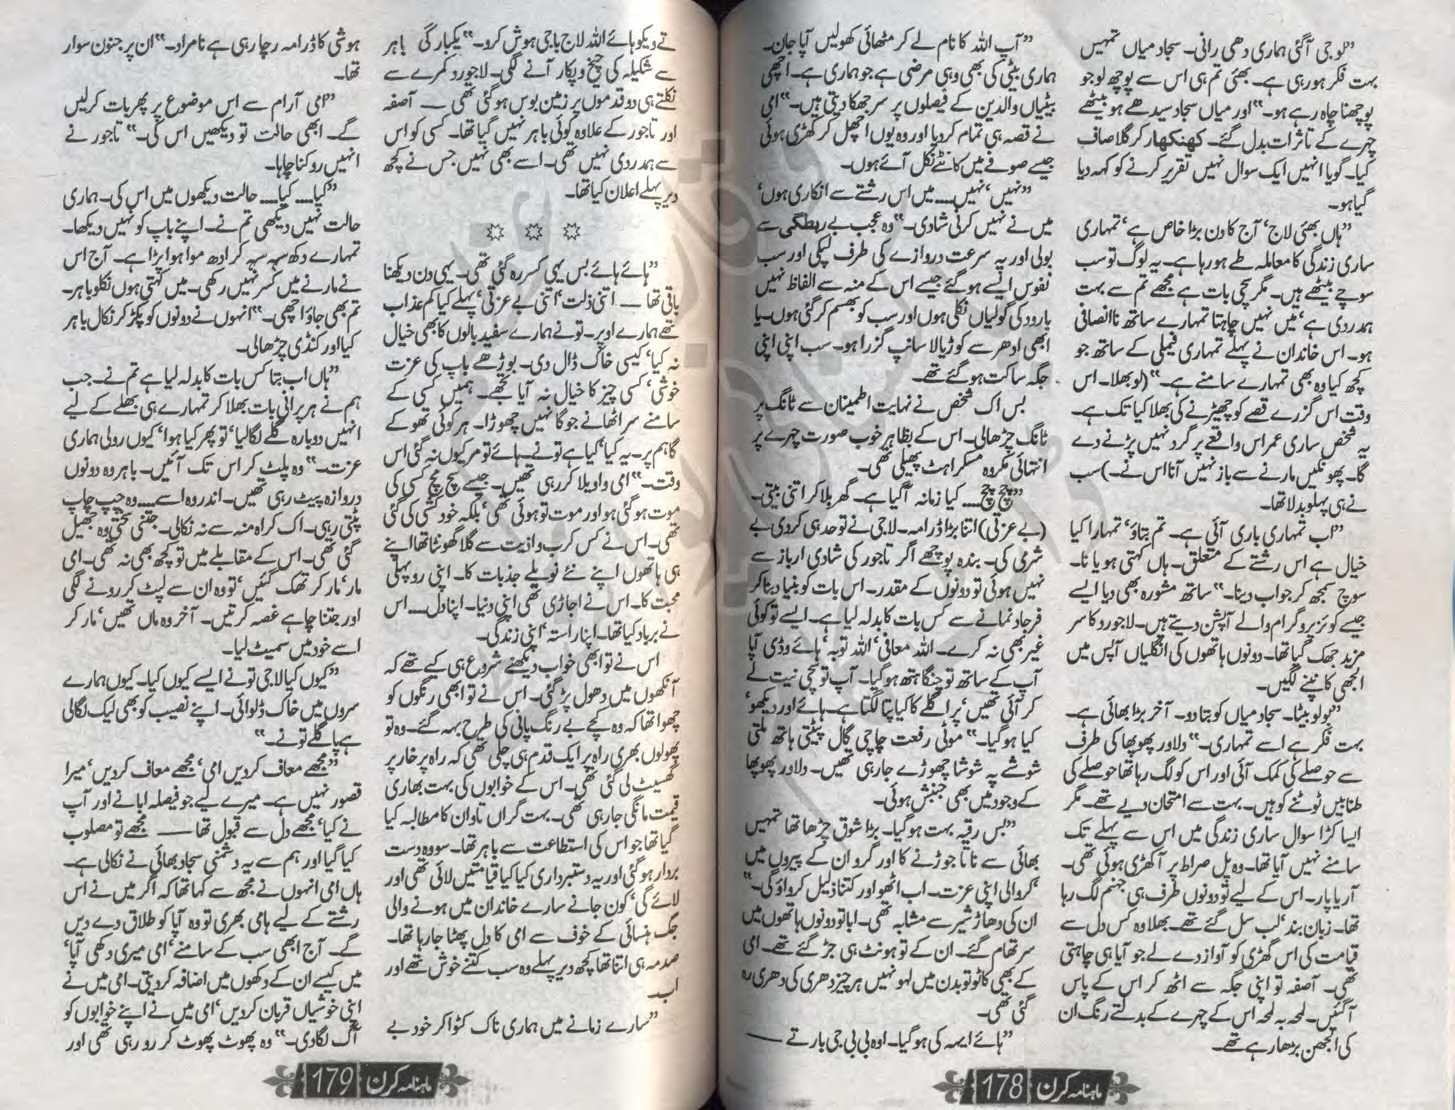 ”لو جی آ گئی ہماری دھی رانی۔ سجاد میاں تمہیں
بہت فکر ہو رہی ہے۔ بھئی تم ہی اس سے پوچھ لو جو
پوچھنا چاہ رہے ہو۔“ اور میاں سجاد سیدھے ہو بیٹھے
چہرے کے تاثرات بدل گئے۔ کھنکھار کر گلا صاف
کیا۔ گویا انہیں ایک سوال نہیں تقریر کرنے کو کہہ دیا
گیا ہو۔
”ہاں بھئی لاج‘ آج کا دن بڑا خاص ہے‘ تمہاری
ساری زندگی کا معاملہ طے ہو رہا ہے۔ یہ لوگ تو سب
سوچے بیٹھے ہیں۔ مگر سچی بات ہے مجھے تم سے بہت
ہمدردی ہے‘ میں نہیں چاہتا تمہارے ساتھ ناانصافی
ہو۔ اس خاندان نے پہلے تمہاری فیملی کے ساتھ جو
کچھ کیا وہ بھی تمہارے سامنے ہے۔“ (لو بھلا۔ اس
وقت اس گزرے قصے کو چھیڑنے کی بھلا کیا تک ہے۔
یہ شخص ساری عمر اس واقعے پر گرد نہیں پڑنے دے
گا۔ پھونکیں مارنے سے باز نہیں آنا اس نے۔) سب
نے ہی پہلو بدلا تھا۔
”اب تمہاری باری آئی ہے۔ تم بتاؤ‘ تمہارا کیا
خیال ہے اس رشتے کے متعلق۔ ہاں کہتی ہو یا نا۔
سوچ سمجھ کر جواب دینا۔“ ساتھ مشورہ بھی دیا ایسے
جیسے کوئز پروگرام والے آپشن دیتے ہیں۔ لاجورد کا سر
مزید جھک گیا تھا۔ دونوں ہاتھوں کی انگلیاں آپس میں
الجھی کانپنے لگیں۔
”بولو بیٹا۔ سجاد میاں کو بتا دو۔ آخر بڑا بھائی ہے۔
بہت فکر ہے اسے تمہاری۔“ دلاور پھوپھا کی طرف
سے حوصلے کی کمک آئی اور اس کو لگ رہا تھا حوصلے کی
طنابیں ٹوٹنے کو ہیں۔ بہت سے امتحان دیے تھے۔ مگر
ایسا کڑا سوال ساری زندگی میں اس سے پہلے تک
سامنے نہیں آیا تھا۔ وہ پل صراط پر آکھڑی ہوئی تھی۔
آر یا پار۔ اس کے لیے تو دونوں طرف ہی جہنم لگ رہا
تھا۔ زبان بند‘ لب سل گئے تھے۔ بھلا وہ کس دل سے
قیامت کی اس گھڑی کو آواز دے لے جو آیا ہی چاہتی
تھی۔ آصفہ تو اپنی جگہ سے اٹھ کر اس کے پاس
آ گئیں۔ لمحہ بہ لمحہ اس کے چہرے کے بدلتے رنگ ان
کی الجھن بڑھا رہے تھے۔
”آپ اللہ کا نام لے کر مٹھائی کھولیں آپا جان۔
ہماری بیٹی کی بھی وہی مرضی ہے جو ہماری ہے۔ اچھی
بیٹیاں والدین کے فیصلوں پر سر جھکا دیتی ہیں۔“ امی
نے قصہ ہی تمام کر دیا اور وہ یوں اچھل کر کھڑی ہوئی
جیسے صوفے میں کانٹے نکل آئے ہوں۔
”نہیں‘ نہیں..... میں اس رشتے سے انکاری ہوں‘
میں نے نہیں کرنی شادی۔“ وہ عجب بے ربطگی سے
بولی اور بہ سرعت دروازے کی طرف لپکی اور سب
نفوس ایسے ہو گئے جیسے اس کے منہ سے الفاظ نہیں
بارود کی گولیاں نکلی ہوں اور سب کو بھسم کر گئی ہوں۔ یا
ابھی ادھر سے کوڑیالا سانپ گزرا ہو۔ سب اپنی اپنی
جگہ ساکت ہو گئے تھے۔
بس اک شخص نے نہایت اطمینان سے ٹانگ پر
ٹانگ چڑھالی۔ اس کے بظاہر خوب صورت چہرے پر
انتہائی مکروہ مسکراہٹ پھیلی تھی۔
”چچ چچ..... کیا زمانہ آگیا ہے۔ گھر بلا کر اتنی بیتی۔
(بے عزتی) اتنا بڑا ڈرامہ۔ لاجی نے تو حد ہی کر دی بے
شرمی کی۔ بندہ پوچھے اگر تاجور کی شادی ارباز سے
نہیں ہوئی تو دونوں کے مقدر۔ اس بات کو بنیاد بنا کر
فرجاد نمانے سے کس بات کا بدلہ لیا ہے۔ ایسے تو کوئی
غیر بھی نہ کرے۔ اللہ معافی‘ اللہ توبہ‘ ہائے وڈی آپا
آپ کے ساتھ تو چنگا ہتھ ہو گیا۔ آپ تو سچی نیت لے
کر آئی تھیں‘ پر اگلے کا کیا پتا لگتا ہے۔ ہائے اور دیکھو‘
کیا ہو گیا۔“ موئی رفعت چاچی گال پیٹتی ہاتھ ملتی
شوشے پہ شوشا چھوڑے جا رہی تھیں۔ دلاور پھوپھا
کے وجود میں بھی جنبش ہوئی۔
”بس رقیہ بہت ہو گیا۔ بڑا شوق چڑھا تھا تمہیں
بھائی سے ناتا جوڑنے کا اور گرو ان کے پیروں میں
‘کروالی اپنی عزت۔ اب اٹھو اور کتنا ذلیل کرواؤ گی۔“
ان کی دھاڑ شیر سے مشابہ تھی۔ ابا تو دونوں ہاتھوں میں
سر تھام گئے۔ ان کے تو ہونٹ ہی جڑ گئے تھے۔ امی
کے بھی کاٹو تو بدن میں لہو نہیں ہر چیز دھری کی دھری رہ
گئی تھی۔
”ہائے ایہہ کی ہو گیا۔ اوہ بی بی جی بارتے ——
ماہنامہ کرن 178
تے ویکو ہائے اللہ لاج باجی ہوش کرو۔“ یکبارگی باہر
سے شکیلہ کی چیخ و پکار آنے لگی۔ لاجورد کمرے سے
نکلتے ہی دو قدموں پر زمین بوس ہو گئی تھی — آصفہ
اور تاجور کے علاوہ کوئی باہر نہیں گیا تھا۔ کسی کو اس
سے ہمدردی نہیں تھی۔ اسے بھی نہیں جس نے کچھ
دیر پہلے اعلان کیا تھا۔
☼ ☼ ☼
”ہائے ہائے بس یہی کسر رہ گئی تھی۔ یہی دن دیکھنا
باقی تھا — اتنی ذلت‘ اتنی بے عزتی‘ پہلے کیا کم عذاب
تھے ہمارے اوپر۔ تو نے ہمارے سفید بالوں کا بھی خیال
نہ کیا‘ کیسی خاک ڈال دی۔ بوڑھے باپ کی عزت
خوشی‘ کسی چیز کا خیال نہ آیا تجھے۔ ہمیں کسی کے
سامنے سر اٹھانے جوگا نہیں چھوڑا۔ ہر کوئی تھو کے
گا ہم پر۔ یہ کیا‘ کیا ہے تو نے‘ ہائے تو مر کیوں نہ گئی اس
وقت۔“ امی واویلا کر رہی تھیں۔ جیسے سچ مچ کسی کی
موت ہو گئی ہو اور موت تو ہوئی تھی‘ بلکہ خود کشی کی گئی
تھی۔ اس نے کس کرب و اذیت سے گلا گھونٹا تھا اپنے
ہی ہاتھوں اپنے نئے نویلے جذبات کا۔ اپنی روپہلی
محبت کا۔ اس نے اجاڑی تھی اپنی دنیا۔ اپنا دل.... اس
نے برباد کیا تھا۔ اپنا راستہ‘ اپنی زندگی۔
اس نے تو ابھی خواب دیکھنے شروع ہی کیے تھے کہ
آنکھوں میں دھول پڑ گئی۔ اس نے تو ابھی رنگوں کو
چھوا تھا کہ وہ کچے بے رنگ پانی کی طرح بہہ گئے۔ وہ تو
پھولوں بھری راہ پر ایک قدم ہی چلی تھی کہ راہ پر خار پر
گھسیٹ لی گئی تھی۔ اس کے خوابوں کی بہت بھاری
قیمت مانگی جارہی تھی۔ بہت گراں تاوان کا مطالبہ کیا
گیا تھا جو اس کی استطاعت سے باہر تھا۔ سو وہ دست
بردار ہو گئی اور یہ دستبرداری کیا کیا قیامتیں لائی تھی اور
لائے گی‘ کون جانے سارے خاندان میں ہونے والی
جگ ہنسائی کے خوف سے امی کا دل پھٹا جا رہا تھا۔
صدمہ ہی اتنا تھا کچھ دیر پہلے وہ سب کتنے خوش تھے اور
اب۔
”سارے زمانے میں ہماری ناک کٹوا کر خود بے
ہوشی کا ڈرامہ رچا رہی ہے نامراد۔“ ان پر جنون سوار
تھا۔
”امی آرام سے اس موضوع پر پھر بات کرلیں
گے۔ ابھی حالت تو دیکھیں اس کی۔“ تاجور نے
انہیں روکنا چاہا۔
”کیا.... کیا.... حالت دیکھوں میں اس کی۔ ہماری
حالت نہیں دیکھی تم نے۔ اپنے باپ کو نہیں دیکھا۔
تمہارے دکھ سہہ سہہ کر ادھ موا ہوا پڑا ہے۔ آج اس
نے مارنے میں کسر نہیں رکھی۔ میں کہتی ہوں نکلو باہر۔
تم بھی جاؤ اچھی۔“ انہوں نے دونوں کو پکڑ کر نکال باہر
کیا اور کنڈی چڑھالی۔
”ہاں اب بتا کس بات کا بدلہ لیا ہے تم نے۔ جب
ہم نے ہر پرانی بات بھلا کر تمہارے ہی بھلے کے لیے
انہیں دوبارہ گلے لگالیا‘ تو پھر کیا ہوا‘ کیوں رولی ہماری
عزت۔“ وہ پلٹ کر اس تک آئیں۔ باہر وہ دونوں
دروازہ پیٹ رہی تھیں۔ اندر وہ اسے.... وہ چپ چاپ
پٹتی رہی۔ اک کراہ منہ سے نہ نکالی۔ جتنی سختی وہ جھیل
گئی تھی۔ اس کے مقابلے میں تو کچھ بھی نہ تھی۔ امی
مار‘ مار کر تھک گئیں‘ تو وہ ان سے لپٹ کر رونے لگی
اور جتنا چاہے غصہ کرتیں۔ آخر وہ ماں تھیں‘ مار کر
اسے خود میں سمیٹ لیا۔
”کیوں کیا لاجی تو نے ایسے کیوں کیا۔ کیوں ہمارے
سروں میں خاک ڈلوائی۔ اپنے نصیب کو بھی لیک لگالی
ہے پاگلے تو نے۔“
”مجھے معاف کردیں امی‘ مجھے معاف کردیں‘ میرا
قصور نہیں ہے۔ میرے لیے جو فیصلہ ابا نے اور آپ
نے کیا‘ مجھے دل سے قبول تھا —— مجھے تو مصلوب
کیا گیا اور ہم سے یہ دشمنی سجاد بھائی نے نکالی ہے۔
ہاں امی انہوں نے مجھ سے کہا تھا کہ اگر میں نے اس
رشتے کے لیے ہامی بھری تو وہ آپا کو طلاق دے دیں
گے۔ آج ابھی سب کے سامنے‘ امی میری دکھی آپا‘
میں کیسے ان کے دکھوں میں اضافہ کر دیتی۔ امی میں نے
اپنی خوشیاں قربان کردیں‘ امی میں نے اپنے خوابوں کو
آگ لگا دی۔“ وہ پھوٹ پھوٹ کر رو رہی تھی اور
ماہنامہ کرن 179